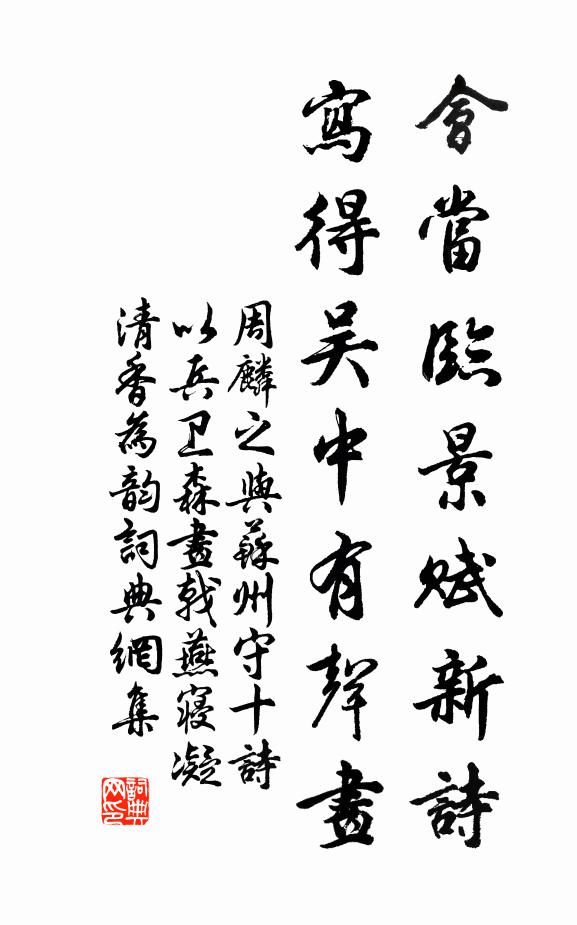 會當臨景賦新詩
寫得吴中有聲畫
周麟之與蘇州守十詩
以兵卫森畫戟燕寝凝
清香為韵詞典網集
詞典
网印